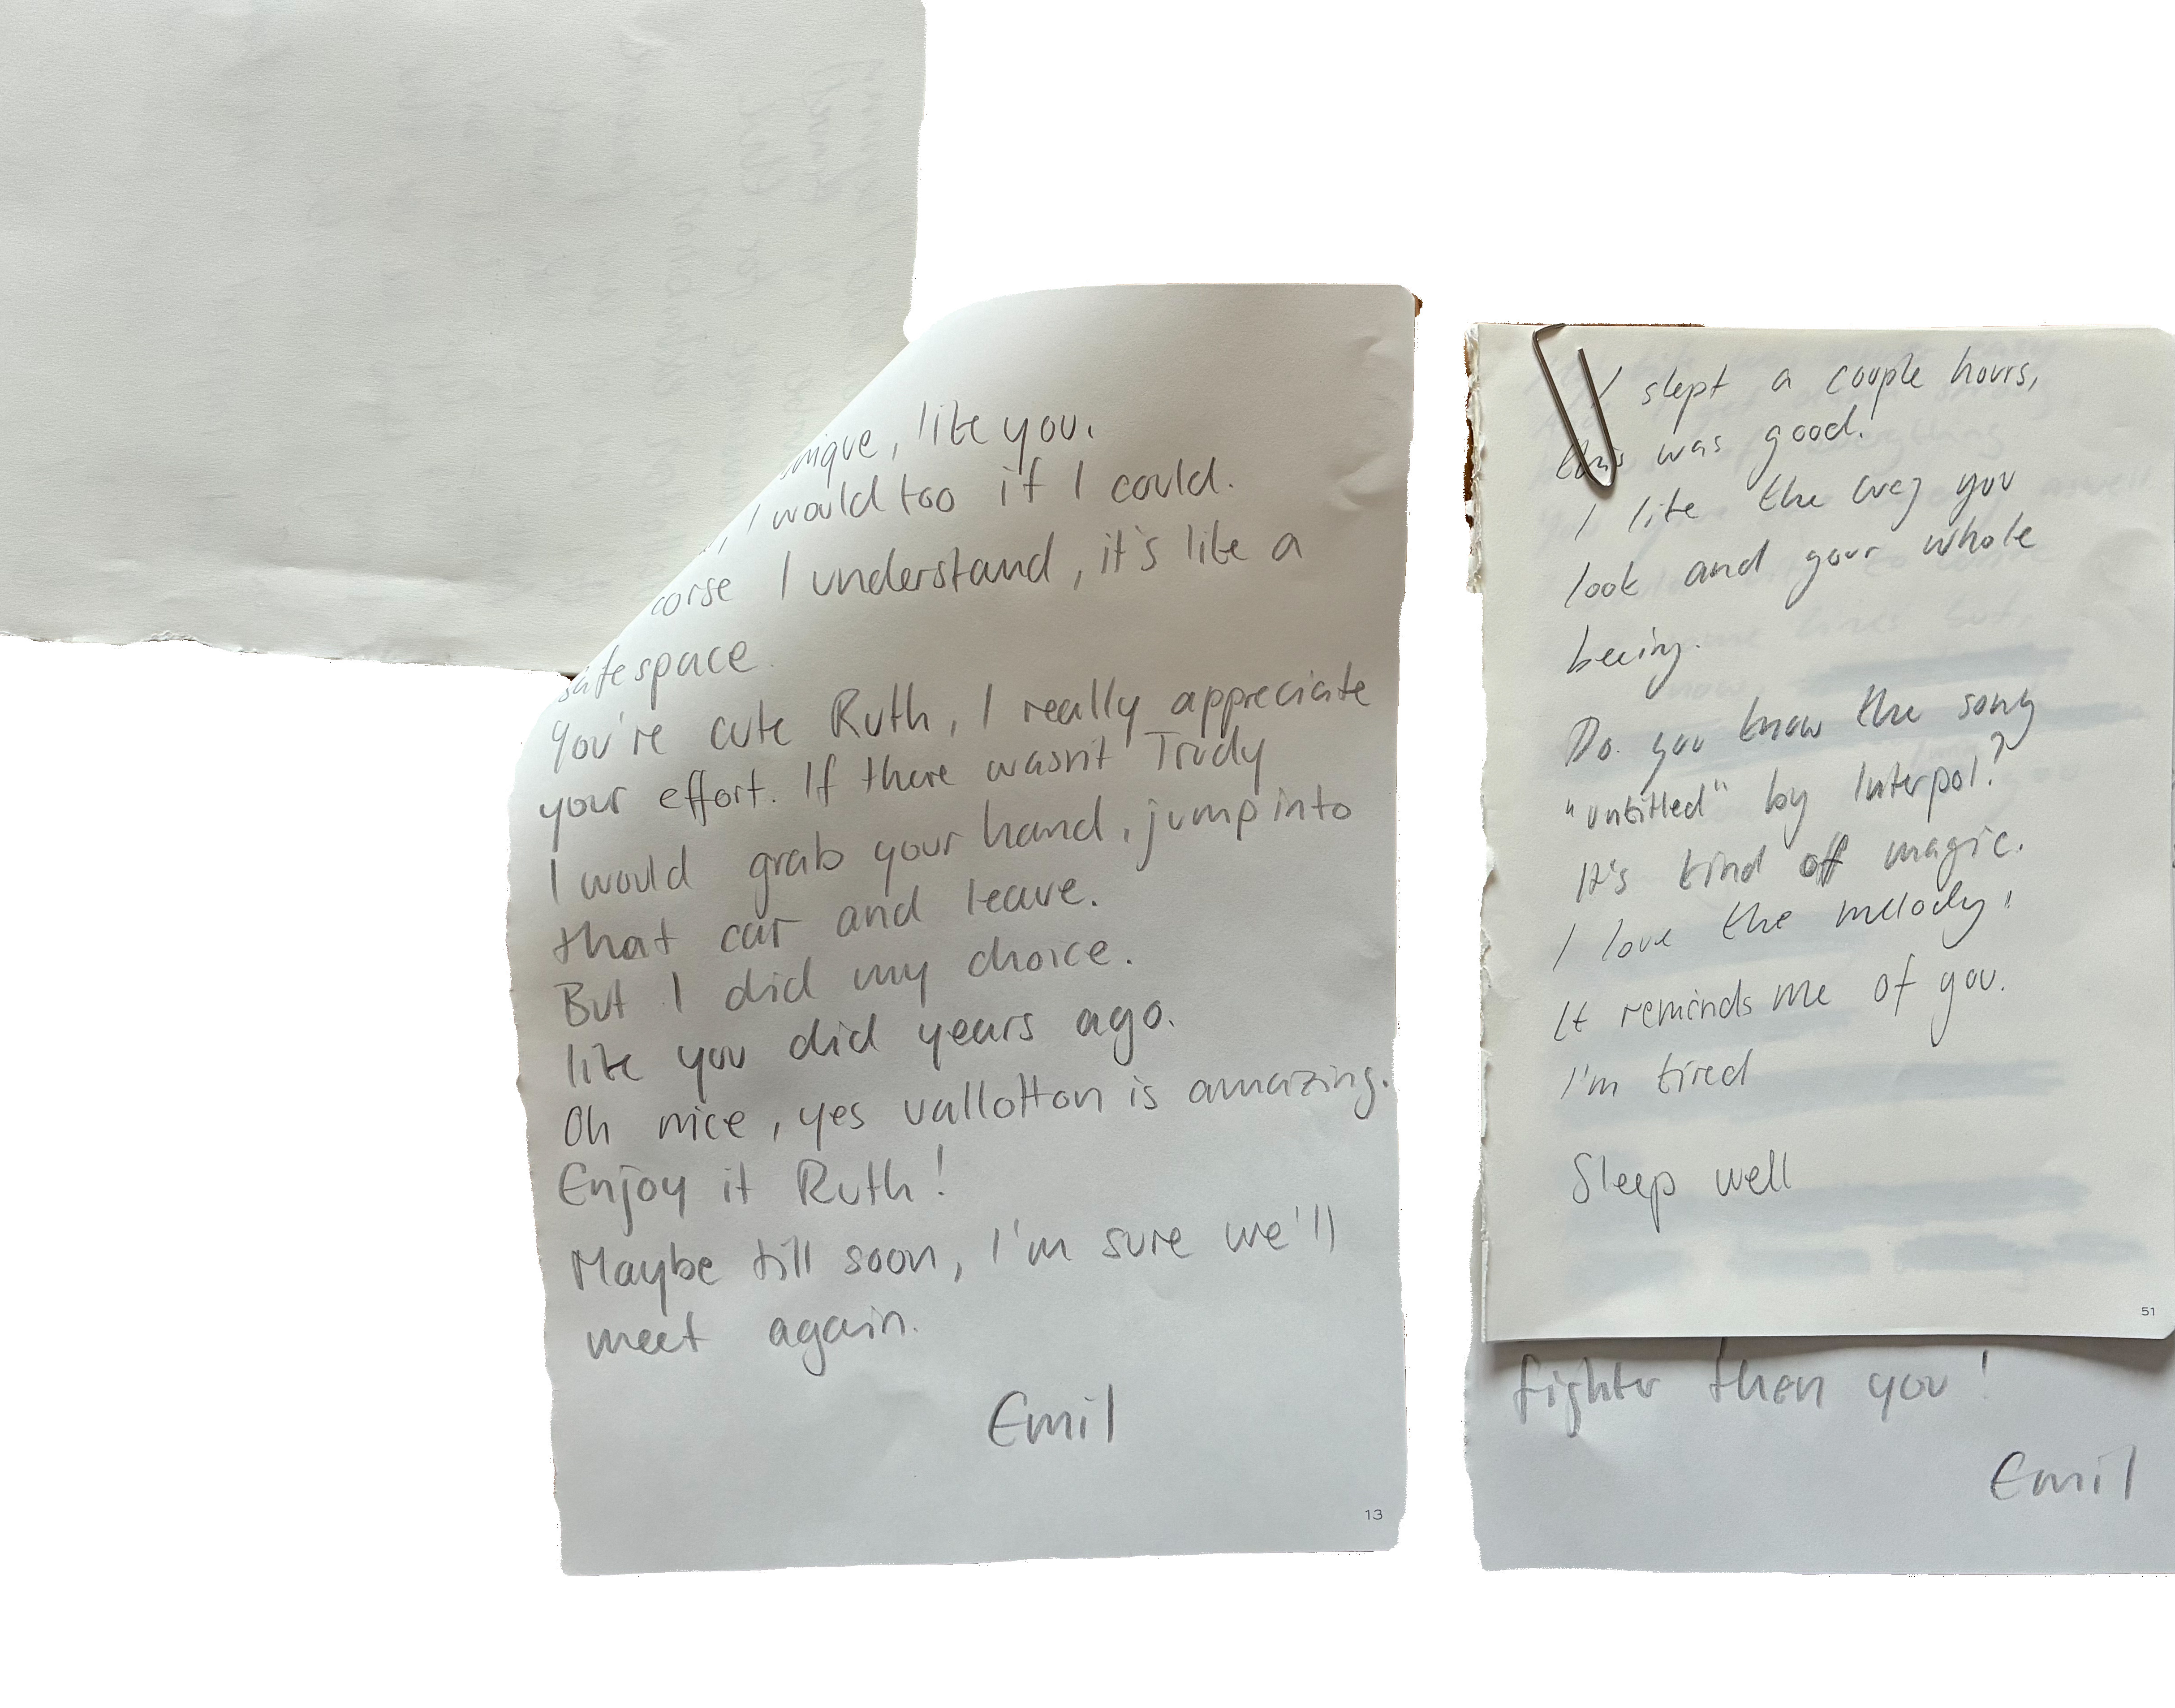 , like you.
, I would too if I could.
corse I understand, it's like a
safe space
You're cute Ruth, I really appreciate
your effort. If there wasn't Trudy
I would grab your hand, jump into
that car and leave.
But I did my choice.
like you did years ago.
Oh nice, yes vallotton is amazing.
Enjoy it Ruth!
Maybe till soon, I'm sure we'll
meet again.
Emil
13
I slept a couple hours,
this was good.
I like the way you
look and your whole
beeing.
Do you know the song
"untitled" by Interpol?
It's kind off magic.
I love the melody,
It reminds me of you.
I'm tired
Sleep well
51
fighter then you!
Emil